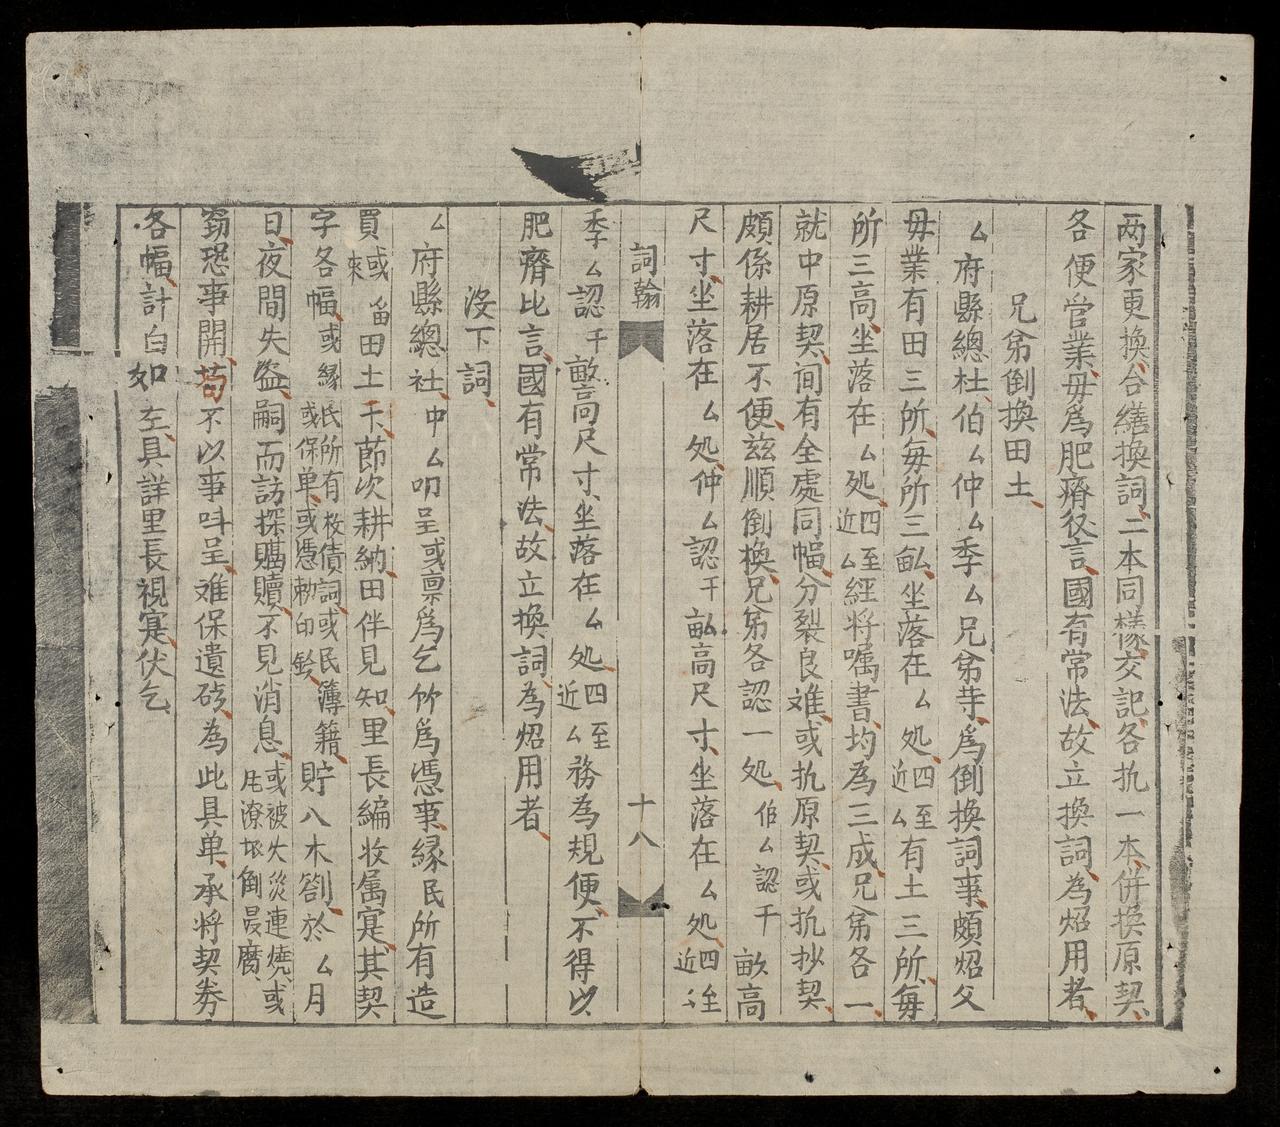 两家更換台繕換詞二本同樣交記各执一本併換原契
各便营業毋爲肥瘠役言國有常法故立換詞為炤用者
兄弟倒換田土
厶府縣總社伯厶仲厶季厶兄弟寺爲倒換詞事頗炤父
母業有田三所每所三畝坐落在厶処近厶四至有土三所每
所三高坐落在厶処近厶四至經将嘱書均為三成兄弟各一
就中原契间有全處同幅分裂良难或执原契或执抄契
頗係耕居不便兹順倒換兄弟各認一処伯厶認千畝高
尺寸坐落在厶処仲厶認千畝高尺寸坐落在厶処近厶四至
詞翰
十八
季厶認千畝高尺寸坐落在厶処近厶四至務為規便不得以
肥瘠比言國有常法故立換詞為炤用者
没下詞
厶府縣總社中厶叩呈或禀爲乞作爲憑事縁民所有造
買或來畄田土千莭次耕納田伴見知里長編收属寔其契
字各幅或縁民所有枚债詞或民簿籍或保单或憑勅印貯八木劄於厶月
日夜間失盗嗣而訪探贖不見消息或被火災連燒或垠倒晸腐
窃恐事開苟不以事呌呈难保遺砖為此具单承将契券
各幅計白如左具詳里長視寔伏乞